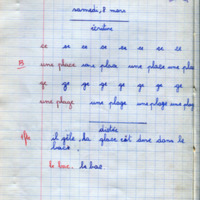 samedi, 8 mars
écriture
ce ce ce ce ce ce ce ce
B une place une place une place une pla
ge ge ge ge ge ge ge ge
une plage une plage une plage une plag
dictée
il gèle, la glace dans le
le bac. le bac.